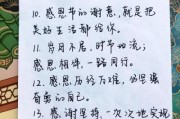 10. 感恩节的谢意,就是把
美好生活都给你。
11. 岁月不居,时节如流;
感恩相伴,一路同行。
12. 感恩历经万难,仍坚强
奋勇的自己。
13. 感谢坚持,一次次地实现